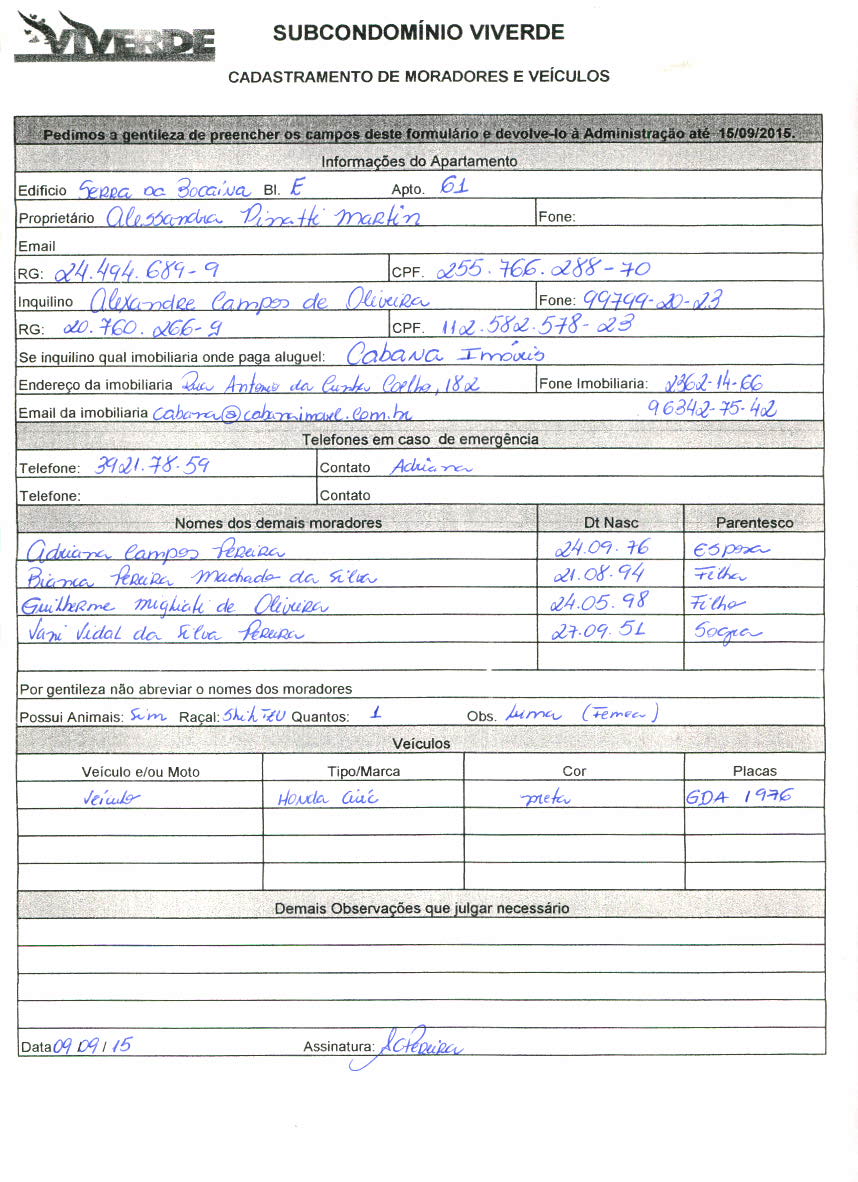 VIVERDE
SUBCONDOMÍNIO VIVERDE
CADASTRAMENTO DE MORADORES E VEÍCULOS
Pedimos a gentileza de preencher os campos deste formulário e devolve-lo à Administração até 15/09/2015.
Informações do Apartamento
Edificio Serra da Bocaina Bl. E Apto. 61
Proprietário Alessandra Pinatti Martin Fone:
Email
RG: 24.494.689-9 CPF. 255.766.288-70
Inquilino Alexandre Campos de Oliveira Fone: 99799-20-23
RG: 20.760.266-9 CPF. 112.582.578-23
Se inquilino qual imobiliaria onde paga aluguel: Cabana Imóvis
Endereço da imobiliaria Rua Antonio da Cunha Coelho, 182 Fone Imobiliaria: 2362-14-66
Email da imobiliaria cabana@cabanaimovel.com.br 96342-75-42
Telefones em caso de emergência
Telefone: 3921.78.59 Contato Adriana
Telefone: Contato
Nomes dos demais moradores Dt Nasc Parentesco
Adriana Campos Pereira 24.09.76 Esposa
Bianca Pereira Machado da Silva 21.08.94 Filha
Guilherme Migliati de Oliveira 24.05.98 Filho
Vani Vidal da Silva Pereira 27.09.51 Sogra
Por gentileza não abreviar o nomes dos moradores
Possui Animais: Sim Raçal: Shih-tzu Quantos: 1 Obs. Luma (Femea)
Veículos
Veículo e/ou Moto Tipo/Marca Cor Placas
Veículo Honda Civic preta GDA 1976
Demais Observações que julgar necessário
Data 09/09/15 Assinatura: ACPereira